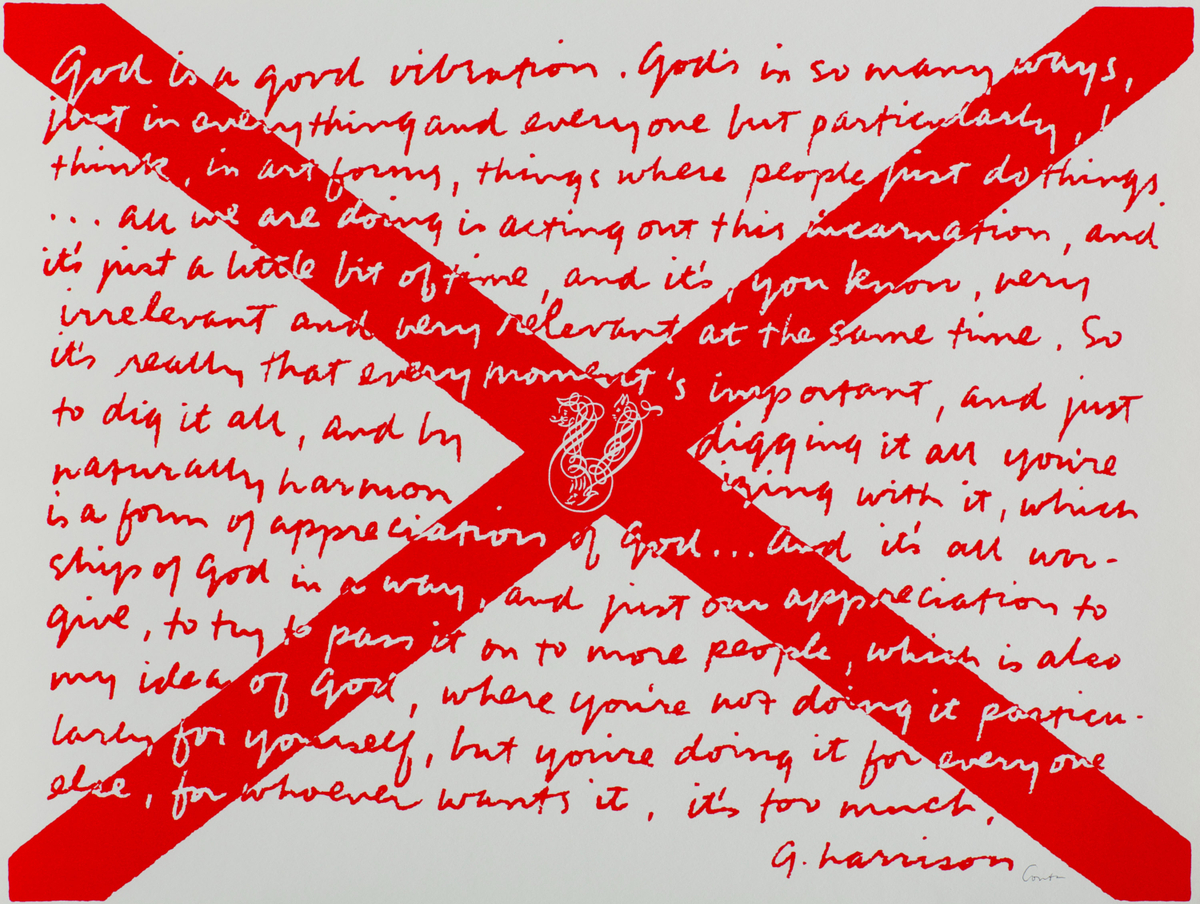 God is a good vibration. God's in so many ways,
just in everything and everyone but particularly, I
think, in art forms, things where people just do things
... all we are doing is acting out this incarnation, and
it's just a little bit of time, and it's, you know, very
irrelevant and very relevant at the same time. So
it's really that every moment's important, and just
to dig it all, and by digging it all you're
naturally harmon izing with it, which
is a form of appreciation of God... And it's all wor-
ship of God in a way, and just our appreciation to
give, to try to pass it on to more people, which is also
my idea of God, where you're not doing it particu-
larly for yourself, but you're doing it for everyone
else, for whoever wants it, it's too much,
G. harrison
Corita